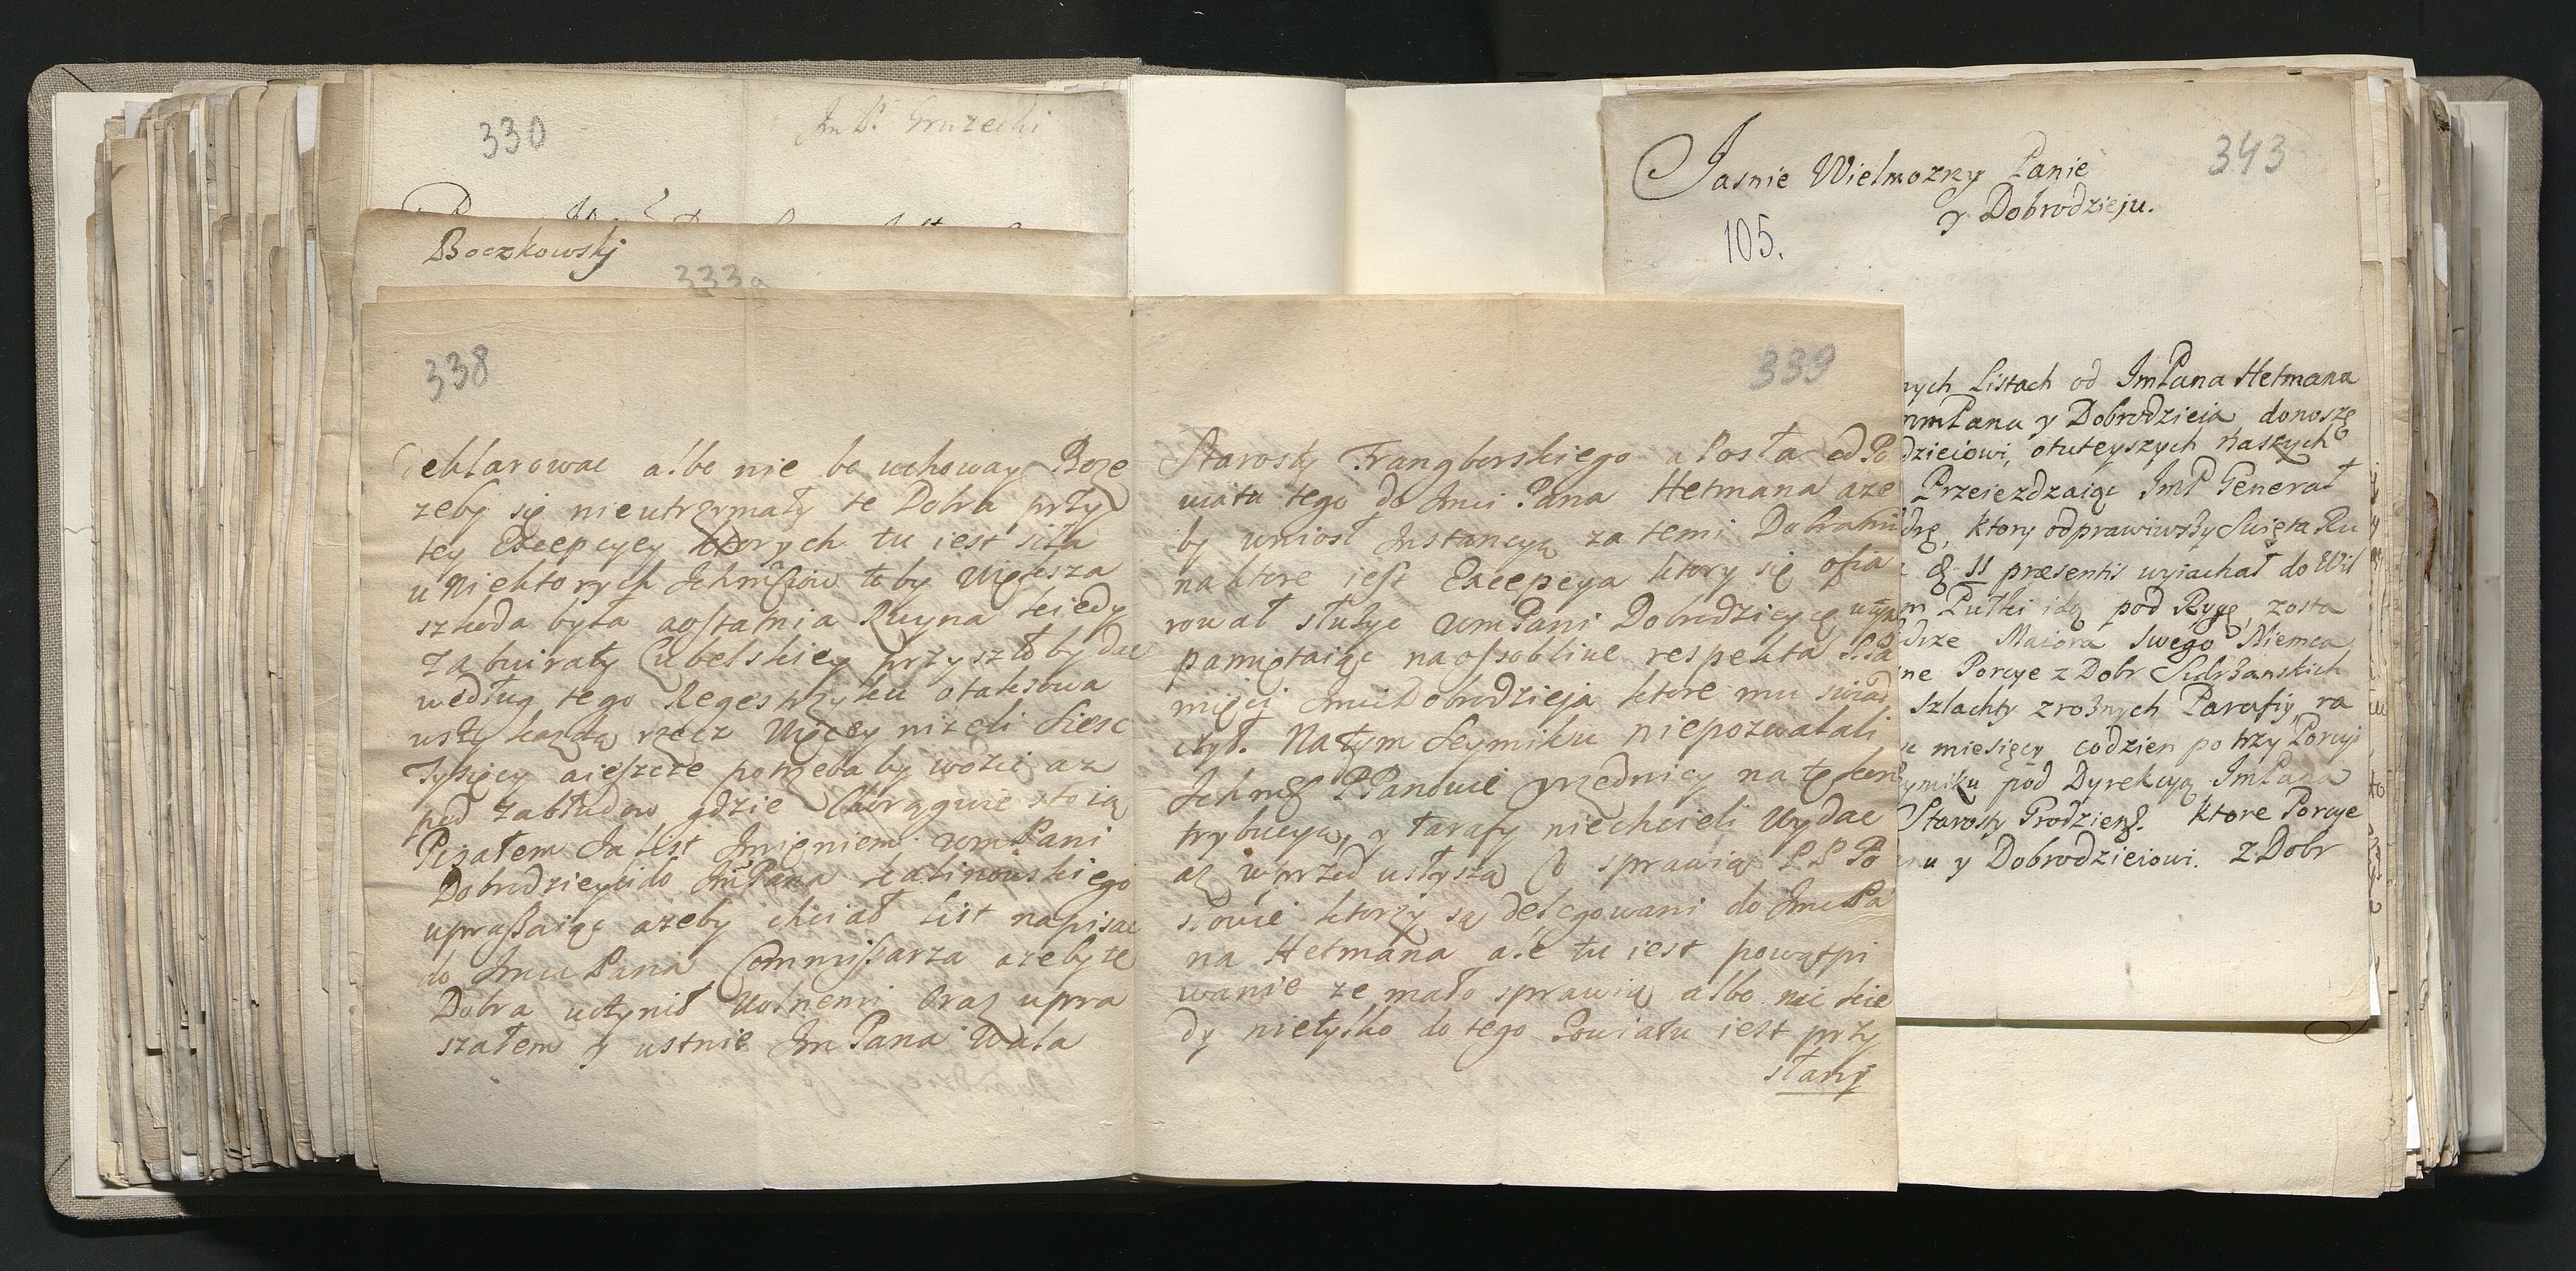 330
Boczkowskj
333a
338
deklarowac albo nie bo uchoway Boze
zeby się nieutrzymały te Dobra przy
tey Excepcyey ktorych tu iest siła
u Niektorych Ichmsciow to by Większa
szkoda była aostatnia Ruyna kiedy
zabwiraty Lubelskiey przyszłoby dac
według tego Regestrzyku otaxowa
uszy kazdą rzecz Więcey nizeli siesc
Tysięcy aieszcze potrzebaby wozic az
pod Zabłudow gdzie Chorągwie stoią
Pisałem Ja list Imieniem WmPani
Dobrodzieyki do ImPana Kalinowskiego
upraszaiąc azeby chciał list napisac
do Imci Pana Commissarza azeby te
Dobra uczynił Wolnemi Oraz upra
szałem y ustnie Im Pana Wala
339
Starosty Frangborskiego a Posła od Po
wiatu tego do Imci Pana Hetmana aze
by uniosł Instancyą za temi Dobrami
na ktore iest Excepcya ktory się ofia
rował słuzyc WmPani Dobrodzieyce
pamiętaiąc naossobliwe respekta S. Pa
mięci Imci Dobrodzieja ktore mu swiad
czył. Natym Seymiku niepozwalali
Ichmsc PPanowie vrzednicy na tę kon
trybucyą, y Tarafy niechcieli Wydac
asz wprzod usłyszą Co sprawią P P Po
słowie ktorzy są delegowani do Imci Pa
na Hetmana ale tu iest powątpi
wanie ze mało sprawią albo nic kie
dy nietylko do tego Powiatu iest przy
słany
343
Jasnie Wielmozny Panie
y Dobrodzieju.
105.
nych Listach od ImPana Hetmana
mmPana y Dobrodzieia donoszę
dzieiowi, otuteyszych Naszych
Przeiezdzaiąc ImP Generał
drę, ktory odprawiwszy Swięta Ru
11 præsentis wyiachał do Wil
m Pułki idą pod Rygę, zosta
drze Maiora Swego Niemca
ne Porcye z Dobr
Szlachty zroznych Parafiy, ra
miesięcy codzien po trzy Porcyi
ymiku pod Dyrekcyą ImPana
Starosty Grodzieng. Ktore Porcye
u y Dobrodzieiowi. Z Dobr